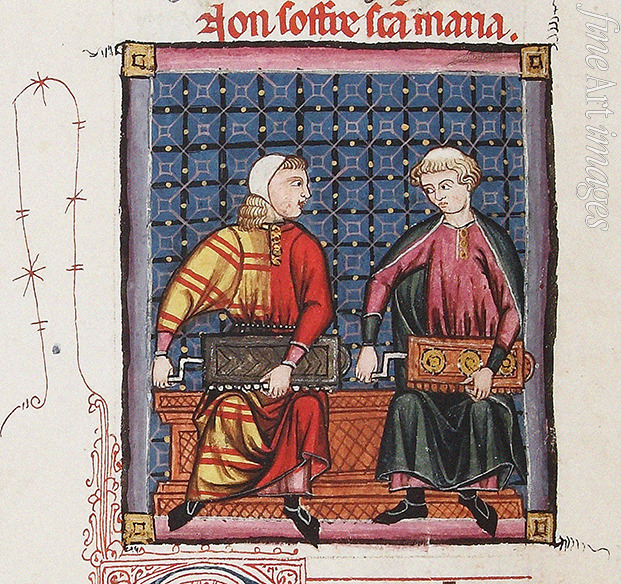 non soffre scã maria.
fine Art images